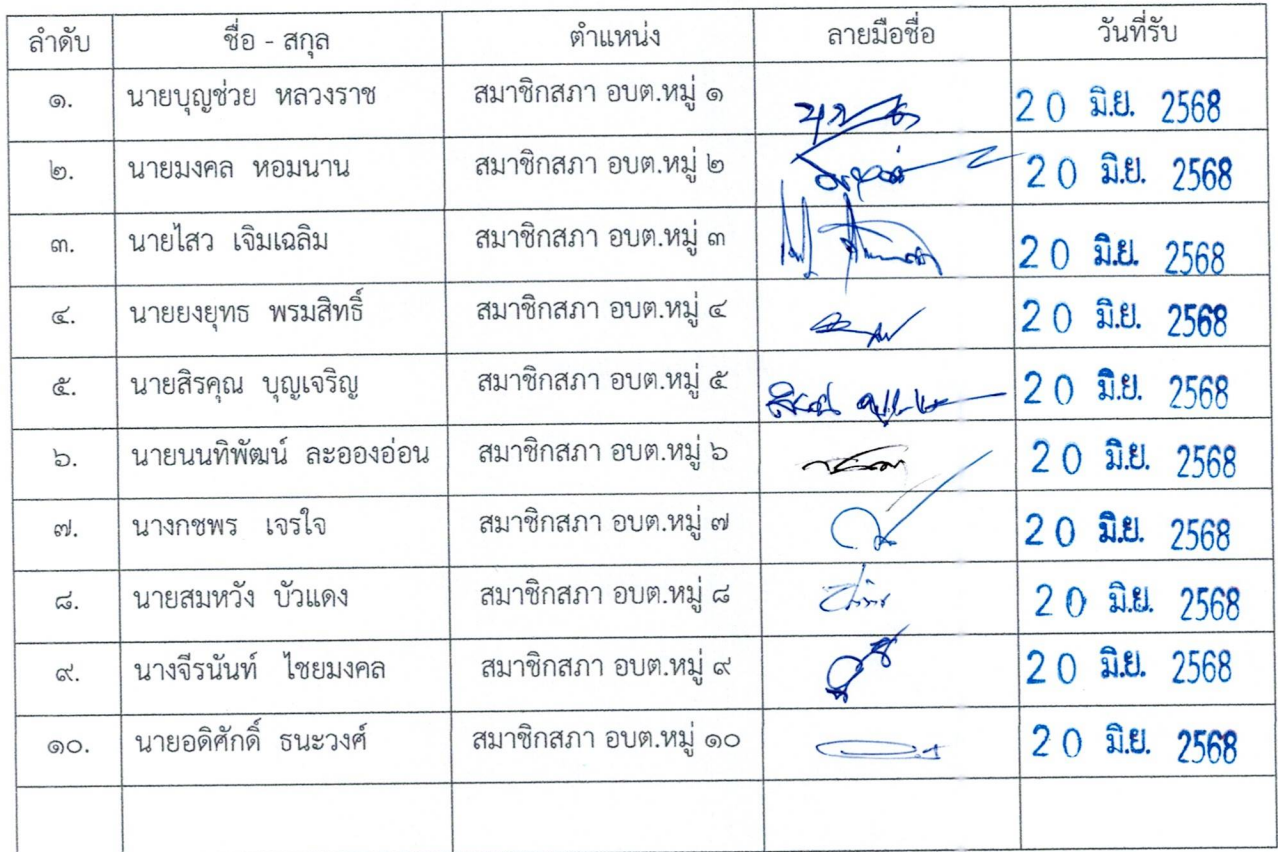 ลำดับ ชื่อ - สกุล ตำแหน่ง ลายมือชื่อ วันที่รับ
๑. นายบุญช่วย หลวงราช สมาชิกสภา อบต.หมู่ ๑ 20 มิ.ย. 2568
๒. นายมงคล หอมนาน สมาชิกสภา อบต.หมู่ ๒ 20 มิ.ย. 2568
๓. นายไสว เจิมเฉลิม สมาชิกสภา อบต.หมู่ ๓ 20 มิ.ย. 2568
๔. นายยงยุทธ พรมสิทธิ์ สมาชิกสภา อบต.หมู่ ๔ 20 มิ.ย. 2568
๕. นายสิรคุณ บุญเจริญ สมาชิกสภา อบต.หมู่ ๕ 20 มิ.ย. 2568
๖. นายนนทิพัฒน์ ละอองอ่อน สมาชิกสภา อบต.หมู่ ๖ 20 มิ.ย. 2568
๗. นางกชพร เจรใจ สมาชิกสภา อบต.หมู่ ๗ 20 มิ.ย. 2568
๘. นายสมหวัง บัวแดง สมาชิกสภา อบต.หมู่ ๘ 20 มิ.ย. 2568
๙. นางจีรนันท์ ไชยมงคล สมาชิกสภา อบต.หมู่ ๙ 20 มิ.ย. 2568
๑๐. นายอดิศักดิ์ ธนะวงศ์ สมาชิกสภา อบต.หมู่ ๑๐ 20 มิ.ย. 2568